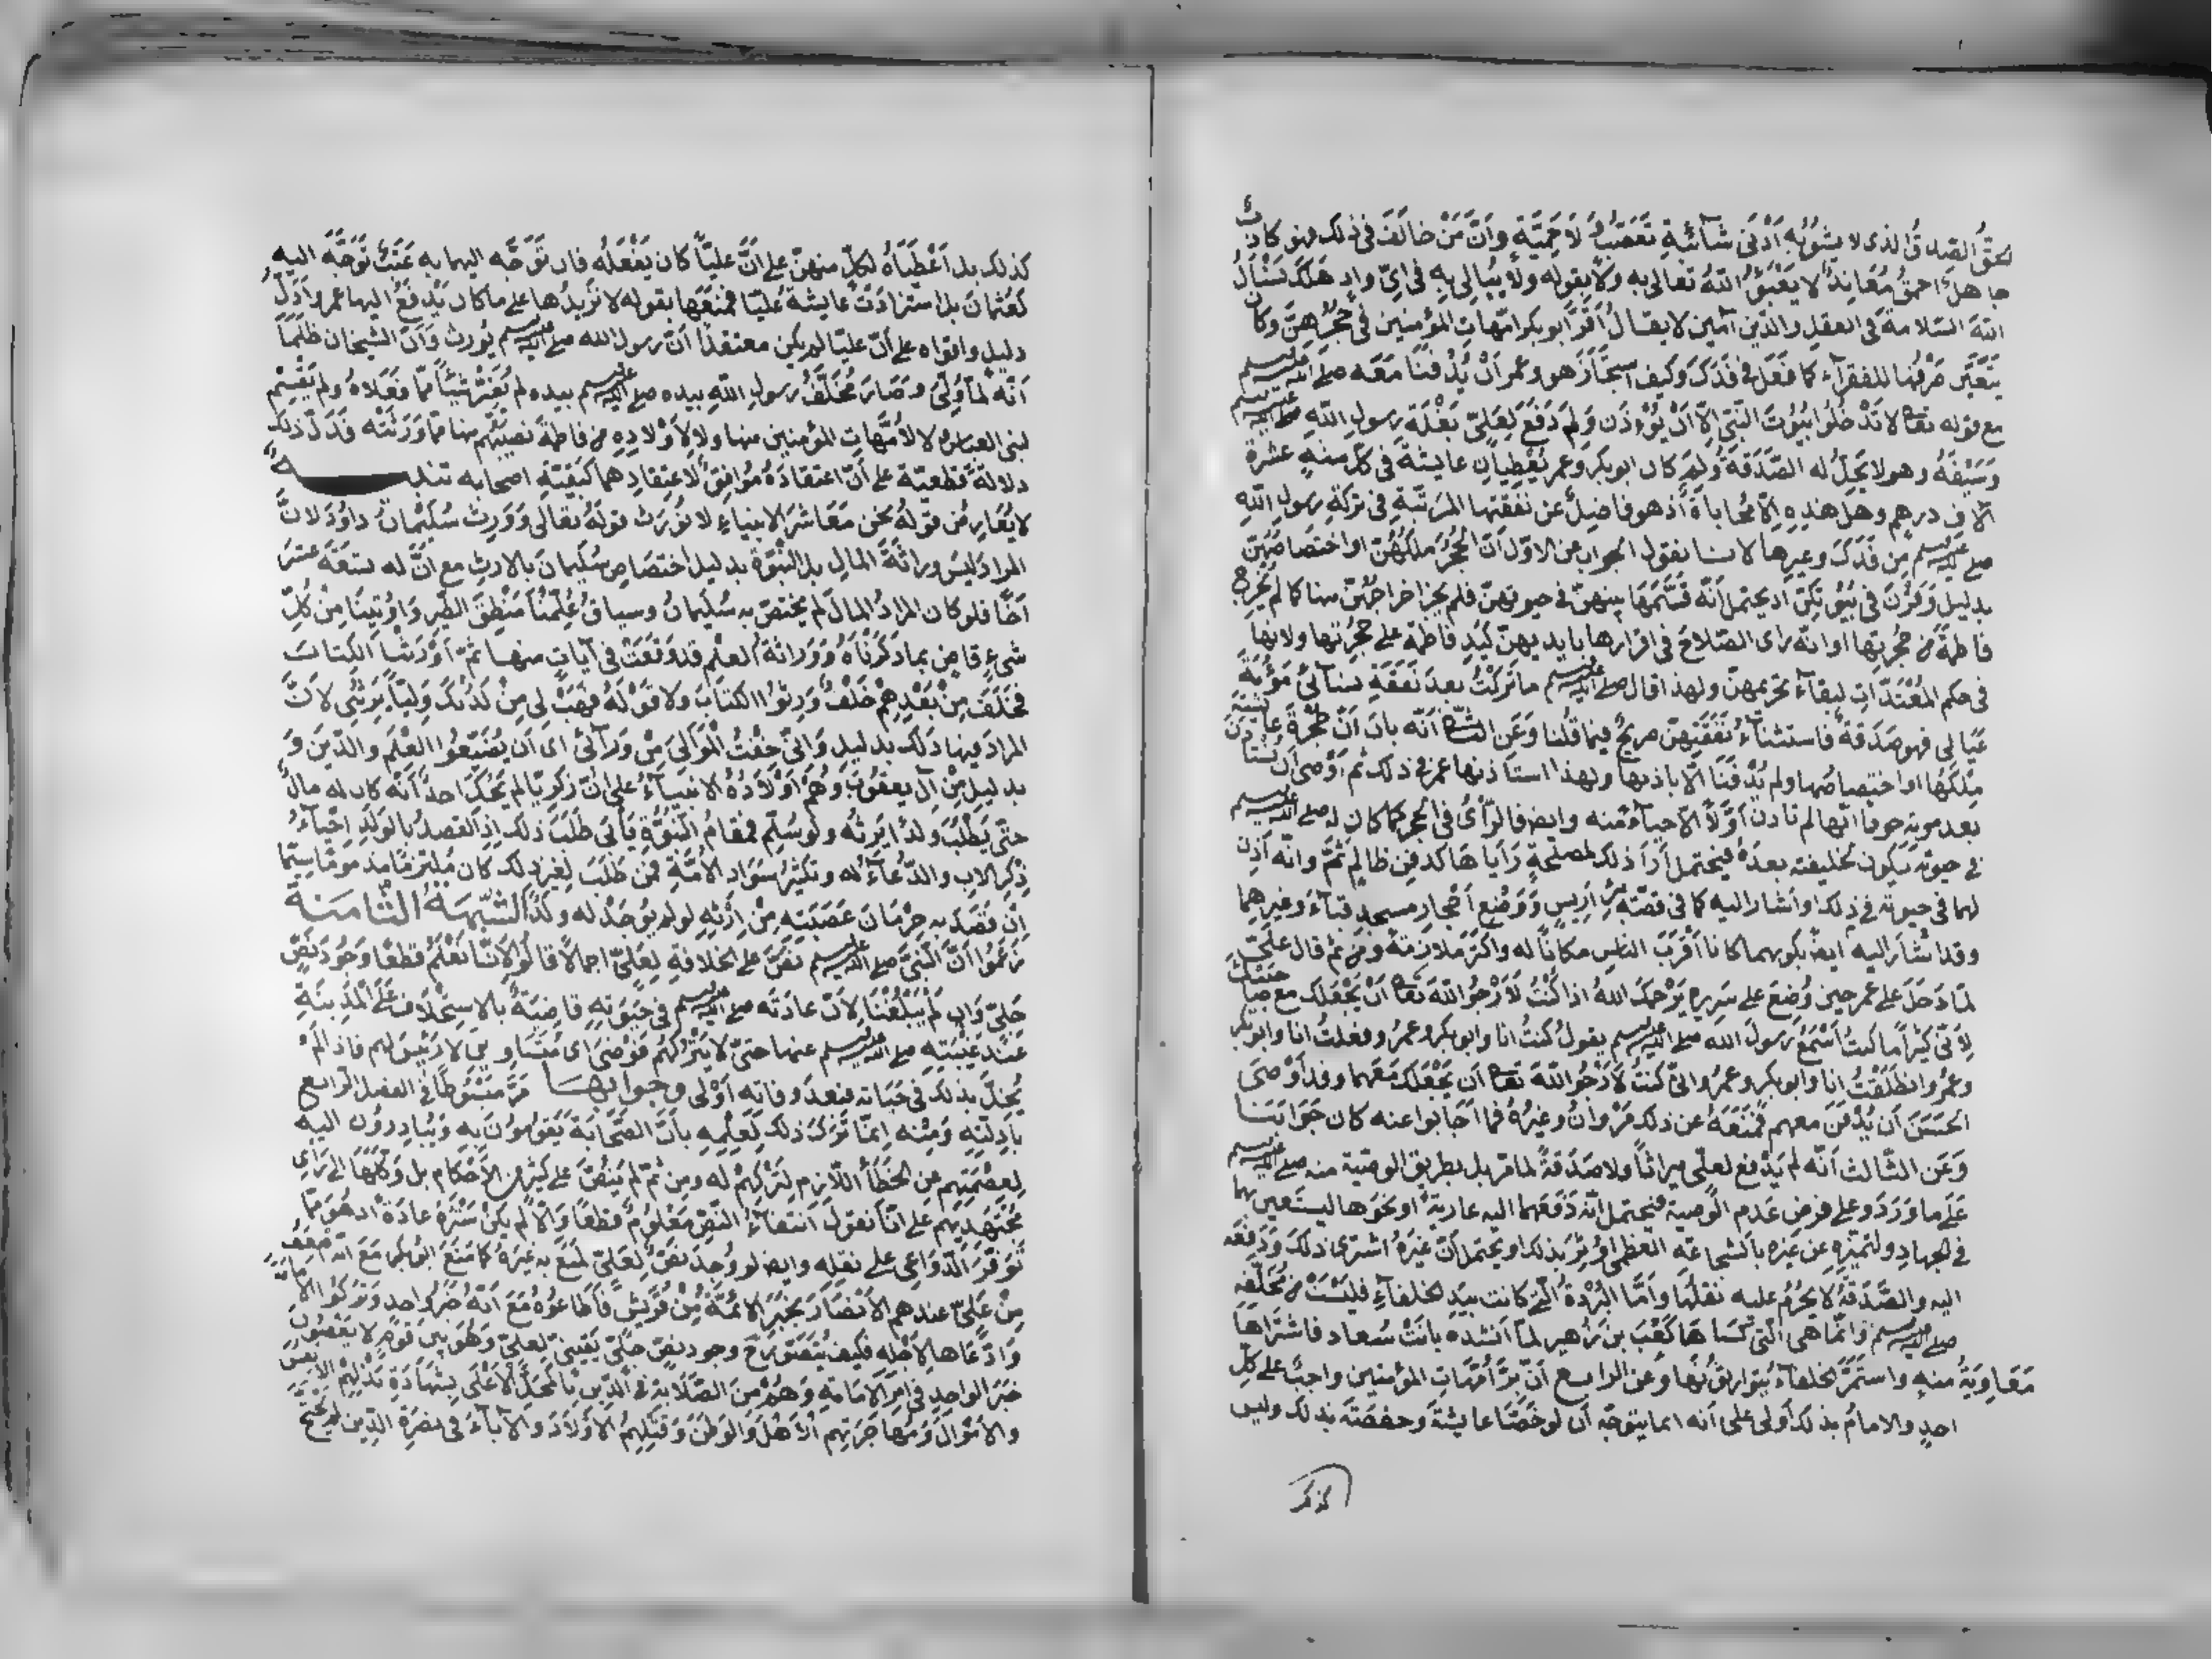 الحقُّ الصدقُ الذى لا يشوبُه اَدْنَى شآئبةِ تَعَصّبٍ وَلَا حَمِيَّة وانَّ مَنْ خالَفَ فى ذلك فهو كاذبٌ
جاهلٌ احمقُ مُعَانِدٌ لا يَعْبَؤُ اللهُ تعالى به ولا بقوله ولا يُبالِى به فى اىّ وادٍ هَلَكَ نَسْأَلُ
اللهَ السّلامةَ فى العقلِ والدّين آمين لا يقالُ اَقَرَّ ابو بكر امّهاتِ المؤمنين فى حُجَرِهنّ وكان
يَتَعَيَّن صَرْفُها للفقرآء كما فَعَلَ فى فَدَك وكيف استجازَ هو وعمر اَنْ يُدْفَنَا مَعَه صلى الله عليه وسلم
مع قوله تعا لا تَدْخُلُوا بُيُوتَ النّبىّ الّا اَنْ يُؤْذَن وَلِمَ دَفَعَ لِعَلِىّ بَغْلَةَ رسولِ اللهِ صلى الله عليه وسلم
وَسَيْفَهُ وهو لا يَحِلُّ له الصّدَقةُ ولِمَ كان ابو بكر وعمر يُعْطِيانِ عايشةَ فى كلّ سنةٍ عشرةَ
آلافِ درهمٍ وهل هذه الّا مُحاباةٌ اذ هو فاضِلٌ عن نفقتها المرتّبةِ فى تركةِ رسول اللهِ
صلى الله عليه وسلم مِن فَدَكَ وغيرها لانا نقول الجواب عن الاوّل اَنّ الحُجَرَ مِلكُهُنّ او اختصاصُهُنّ
بدليل وَقَرْنَ فى بُيُوتِكُنّ اذ يحتمل اَنّه قَسَّمَهَا بينهنّ فى حيوتهنّ فلم يجز اخراجُهُنّ منها كما لم تُخْرَج
فاطمةُ من حُجرتها او انّه رأى الصّلاحَ فى اقرارها بايديهنّ كَيَدِ فاطمةَ على حُجرتها ولانها
فى حكم المُعْتَدّاتِ لبقآءِ تحريمهنّ ولهذا قال صلى الله عليه وسلم ما تركْتُ بعدَ نَفَقَةِ نسآئى ومؤنةِ
عَيَالى فهو صَدَقةٌ فاستثنآءُ نَفَقَتِهِنّ صريحٌ فيما قُلنا وَعَن الثّانى انّه بانَ اَنّ حُجْرةَ عايشةَ
مِلكُها او اختصاصُها ولم يُدْفَنَا الّا باذنها ولهذا استاذنها عمر فى ذلك ثم اَوْصى اَن تُستأذَنَ
بعد موته خوفًا انّها لم تاذن اَوّلًا الّا حيآءً منه وايضا فالرّأىُ فى الحجر كما كان له صلى الله عليه وسلم
فى حيوته يكون لخليفته بعدَهُ فيحتمل اَنّ ذلك لمصلحةٍ رَآياها كدفنِ ظالمٍ ثمّ وانّه اَذِن
لهما فى حيوته فى ذلك او اشار اليه كما فى قصّة بئرِ اَرِيس وَوَضْعِ اَحْجارِ مسجدِ قبآءَ وغيرهما
وقد اشار اليه ايضا بكونهما كانا اَقْرَبَ الناس مكانًا له واكثرَ ملازمةً ومن ثم قال علىّ
لمّا دَخَلَ على عمر حين وُضعَ على سريره يَرْحمكَ اللهُ اذا كُنْتُ لَاَرْجُو اللهَ تعا اَنْ يجعَلك مع صاحبيك
لِاَنّى كثيرًا ما كنتُ اَسْمَعُ رسولَ الله صلى الله عليه وسلم يقولُ كنتُ انا وابو بكر وعمرُ وفعلتُ انا وابو بكر
وعمرُ وانطلَقْتُ انا وابو بكر وعمرُ وانّى كنتُ لَاَرْجُو اللهَ تعا اَن يَجْعَلَك مَعَهما وقد اَوْصَى
الحسَنَ اَن يُدْفَنَ معهم فَمَنَعَهُ عن ذلك مَرْوانُ وغيرُهُ فما اَجَابوا عنه كان جَوَابَنا
وَعَن الثّالث انّه لم يَدْفع لعلىّ ميراثًا ولا صَدَقةً لما مرّ بل بطريق الوصيّة منه صلى الله عليه وسلم
عَلَى ما وَرَدَ وعلى فرضِ عَدم الوصية فيحتمل انّه دَفَعَهما اليه عاريةً او نحوَها ليستعين بهما
فى الجهاد ولتميّزه عن غيره بالشجاعةِ العظمى اُوثِرَ بذلك او يحتمل انّ غيرَهُ اشترى ذلك ودَفَعه
اليه والصّدَقةُ لا يَحْرُمُ عليه نفلُها وامّا البُرْدةُ التى كانت بيدِ الخلفآءِ فليْسَتْ من مُخَلّفه
صلى الله عليه وسلم وانّما هى التى كَسَاها كَعْبَ بن زهير لمّا اَنشده بانَتْ سُعاد فاشتراها
مَعَاوِيَةُ منه واستَمَرَّ الخلفآءُ يتوارثونَها وعن الرابع اَنّ بِرَّ اُمَّهَاتِ المؤمنين واجبٌ على كلّ
احدٍ والامامُ بذلك اَولى على اَنه انما يتوجّه اَن لو خَصَّا عايشةَ وحفصَةَ بذلك وليس
كذلك
كذلك بل اَعْطَيَاهُ لكلّ منهنّ على اَنَّ عليّاً كان يَفْعَلُه فان تَوَجّه اليهما به عَتَبٌ تَوَجَّه اليه
كعُثمانَ بل استزادَتْ عايشةُ عليّا فمنَعَها بقوله لا نَزيدُها على ما كان يَدْفَعُ اليها عمر واَدَلُّ
دليلٍ واقواه على اَنّ عليّا لم يكن معتقداً اَنّ رسولَ الله صلى الله عليه وسلم يُورث وَاَنّ الشيخان ظلَما
اَنّه لمّا وَلِىَ وصَارَ مُخَلَّفُ رسولِ اللهِ بيده صلى الله عليه وسلم بيده لم يُغَيّرْ شيئاً ممّا فَعَلاهُ ولم يَقْسِمْ
لبنى العباس لا لاُمّهَاتِ المؤمنين منها ولا لِاَوْلادِه من فاطمةَ نصيبَهُم منها ممّا وَرَثَتْه فَدَلّ ذلك
دلالةً قطعيّة على اَنّ اعتقادَهُ مُوَافِقٌ لاعتقادِهما كبَقيّةِ اصحابه تنبيه
لا يُعَارِضُ قولَهُ نحن مَعَاشرَ الانبياءِ لا نُورَث قولُهُ تعالى وَوَرِثَ سُلَيْمَانُ داوُدَ لانّ
المرادَ ليس وراثةَ المالِ بل النّبوّةِ بدليل اختصاصِ سُلَيمانَ بالارثِ مع انَّ له تسعَةَ عشرَ
اَخًا فلو كان المرادُ المالَ لم يختصّ به سُلَيمانُ وسياقُ عُلِّمْنَا مَنْطِقَ الطّيرِ وَاُوتينَا مِنْ كُلّ
شىءٍ قاضٍ بما ذكَرْنَاهُ ووَرَاثةُ العلْم قد وقَعَتْ فى آياتٍ منها ثمّ اَوْرَثْنَا الكِتابَ
فخَلَفَ مِنْ بَعْدِهِمْ خَلْفٌ وَرِثُوا الكتابَ ولا قَوْلُهُ فهَبْ لى مِنْ لَدُنكَ وَلِيّاً يَرِثُنِى لانّ
المرادَ فيها ذلك بدليل وَانّى خِفْتُ المَوَالِىَ مِنْ وَرَآئى اى اَن يُضَيِّعُوا العِلْمَ والدّينَ وَ
بدليلِ مِنْ آلِ يعقُوبَ وهُمْ اَوْلَادُهُ الانبيآءُ على انّ زكريّا لم يَحْكِ احدٌ اَنّه كان له مالٌ
حتّى يَطْلُبَ ولدًا يَرِثُه ولو سُلِّم فمَقامُ النّبوّةِ يأبى طَلَبَ ذلك اِذِ القصدُ بالوَلَدِ احْيآءُ
ذِكرِ الابِ والدّعآءُ له وتكثيرُ سَوَادِ الامّةِ فمن طَلَبَ لِغيرِ ذلك كان مُلتزمًا مذمومًا سيّما
اِنْ قَصَدَ به حِرْمَانَ عَصَبَتِهِ مِنْ اِرْثِهِ لو لم يُوجَدْ له ولدٌ الشّبهَةُ الثّامنة
زَعَمُوا اَنّ النّبىَّ صلى الله عليه وسلم نَصَّ على الخلافةِ لِعَلِىّ اجمالًا قالُوا لِاَنّا نَعْلَمُ قطعًا وجُودَ نَصٍّ
جَلِىّ وَاِن لَمْ يَبْلُغْنَا لِاَنّ عادَتَه صلى الله عليه وسلم فى حَيَوتِهِ قاضيةٌ بالاسِتخْلَاف عَلَى الْمَدِينَةِ
عندَ غَيْبَتِهِ صلى الله عليه وسلم عنها حتىّ لا يَتْرُكَهُم فَوْضَى اى مُتَسَاوِيينَ لا رَئيسَ لهم فاذا لَمْ
يُخِلَّ بذلك فى حَيَاته فبَعدَ وفاته اَوْلى وجوابها مَرَّ مَبْسُوطًا فى الفصل الرّابع
بِاَدِلّتِهِ وَمِنْه اِنّما تَرَكَ ذلك لِعِلْمِهِ بِاَنّ الصّحَابةَ يَقومُونَ بِهِ ويُبَادِرُونَ اليه
لِعِصْمَتِهِم عن الخَطَأ اللّازِم لِتَرْكِهِمْ له ومن ثَمّ لم يَنُصَّ على كَثيرٍ من الاَحْكام بل وَكَلَهَا الى رَأى
مُجْتَهِديهِم على انّا نقولُ انتفآءُ النّصِّ مَعْلُومٌ قطعًا وَاِلّا لم يكُنْ سَتْرُهُ عادةً اذ هُوَ ممّا
تَوَفّرَ الدّوَاعِى على نقلِه وايضا لو وُجدَ نصٌّ لِعَلىّ لمنَعَ به غيرَهُ كما مَنَعَ ابو بكر مَعَ انّه اضعفُ
مِنْ عَلِىّ عندهم الانصَارَ بخبَرِ الائمّةُ مِنْ قُرَيْشٍ فَاَطاعُوهُ مَعَ اَنّهُ خَبَرُ واحدٍ وتَرَكُوا الامامةَ
وَادّعاءَها لِاَجْلِه فكيف يُتَصَوّر وجودُ نصٍّ جَلِىّ يَقينىّ لعلىّ وهُوَ بين قَوْمٍ لا يعصُونَ
خبَرَ الواحدِ فى اَمرِ الاِمامَةِ وَهُمْ مِنَ الصّلَابةِ فى الدّين بالمحَلِّ الاَعْلَى بِشَهَادَةِ بَذْلِهِمُ الانفُسَ
والاَمْوَالَ ومُهَاجَرَتِهِم الاَهْلَ وَالوَطَنَ وقَتْلِهِمُ الاَوْلَادَ والآبآءَ فى نصرَةِ الدِّين ثمّ لم يحتَجّ